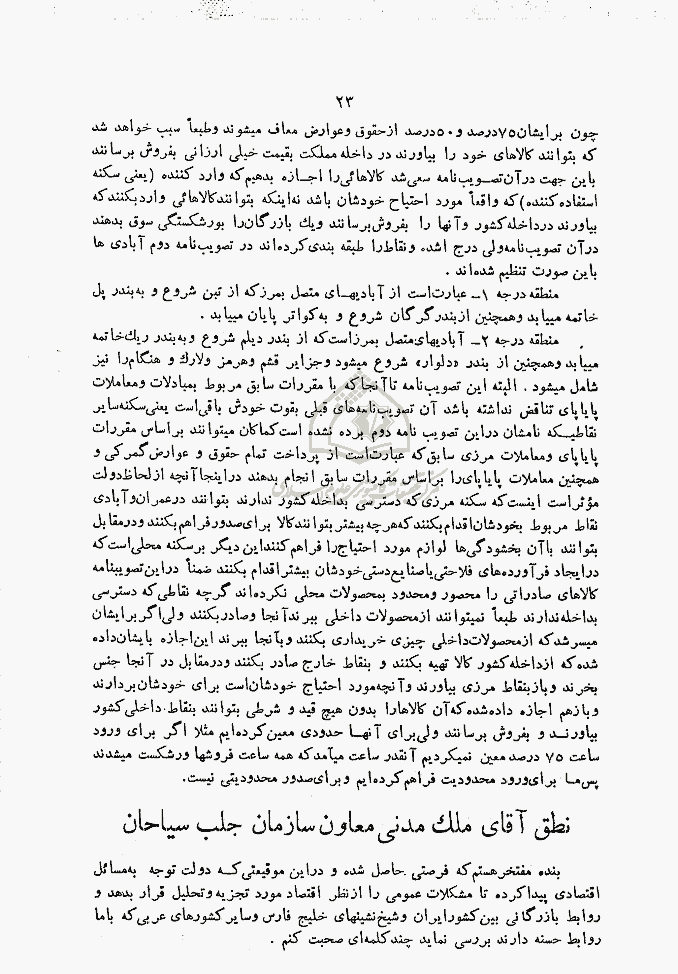 ۲۳
چون برایشان ۷۵ درصد و ۵۰ درصد از حقوق وعوارض معاف میشوند وطبعاً سبب خواهد شد
که بتوانند کالاهای خود را بیاورند در داخله مملکت بقیمت خیلی ارزانی بفروش برسانند
باین جهت درآن تصویب‌نامه سعی‌شد کالاهائی‌را اجازه بدهیم‌که وارد کننده (یعنی سکنه
استفاده‌کننده) که واقعاً مورد احتیاج خودشان باشد نه‌اینکه بتوانند کالاهائی وارد بکنندکه
بیاورند درداخله‌کشور وآنها را بفروش برسانند ویك بازرگان‌را بورشکستگی سوق بدهند
درآن تصویب‌نامه ولی درج نشده ونقاط‌را طبقه بندی کرده‌اند در تصویب‌نامه دوم آبادی ها
باین صورت تنظیم شده‌اند .
منطقه درجه ۱ـ عبارت‌است از آبادیهـای متصل بمرزکه از تبن شروع و به‌بندر پل
خاتمه مییابد وهمچنین ازبندرگرگان شروع و به‌کواتر پایان مییابد .
منطقه درجه ۲ـ آبادیهای‌متصل بمرزاست‌که از بندر دیلم شروع وبه‌بندر ریك‌خاتمه
مییابد وهمچنین از بندر «دلوار» شروع میشود وجزایر قشم وهرمز ولارك و هنگام‌را نیز
شامل میشود . البته این تصویب‌نامه تاآنجاکه با مقررات سابق مربوط بمبادلات ومعاملات
پایاپای تناقض نداشته باشد آن تصویب‌نامه‌های قبلی بقوت خودش باقی‌است یعنی‌سکنه‌سایر
نقاطیـکه نامشان دراین تصویب نامه دوم برده نشده است‌کماکان میتوانند براساس مقررات
پایاپای ومعاملات مرزی سابق‌که عبارت‌است از پرداخت تمام حقوق و عوارض‌گمرکی و
همچنین معاملات پایاپای‌را براساس مقررات سابق انجام بدهند دراینجا آنچه ازلحاظ‌دولت
مؤثراست اینست‌که سکنه مرزی‌که دسترسی بداخله‌کشور ندارند بتوانند درعمران‌وآبادی
نقاط مربوط بخودشان‌اقدام‌بکنندکه‌هرچه‌بیشتر بتوانند کالا برای صدور فراهم‌بکنند ودرمقابل
بتوانند باآن بخشودگی‌ها لوازم مورد احتیاج‌را فراهم‌کننداین دیگر برسکنه محلی‌است‌که
درایجاد فرآورده‌های فلاحتی‌یاصنایع‌دستی خودشان بیشتراقدام بکنند ضمناً دراین‌تصویبنامه
کالاهای صادراتی را محصور ومحدود بمحصولات محلی نکرده‌اند گرچه نقاطی‌که دسترسی
بداخله‌ندارند طبعاً نمیتوانند ازمحصولات داخلی ببرند آنجا وصادربکنند ولی‌اگر برایشان
میسرشدکه ازمحصولات‌داخلی چیزی خریداری بکنند وبآنجا ببرند این‌اجازه بایشان‌داده
شده‌که ازداخله‌کشور کالا تهیه بکنند و بنقاط خارج صادر بکنند ودرمقابل در آنجا جنس
بخرند وبازبنقاط مرزی بیاورند وآنچه‌مورد احتیاج خودشان‌است برای خودشان‌بردارند
وبازهم اجازه داده‌شده‌که‌آن کالاهارا بدون هیچ قید و شرطی بتوانند بنقاط داخلی‌کشور
بیاورنـد و بفروش برسانند ولی‌برای آنهـا حدودی معین‌کرده‌ایم مثلا اگر برای ورود
ساعت ۷۵ درصد معین نمیکردیم آنقدر ساعت میآمدکه همه ساعت فروشها ورشکست میشدند
پس‌مـا برای‌ورود محدودیت فراهم‌کرده‌ایم وبرای‌صدور محدودیتی نیست.
نطق آقای ملك مدنی معاون سازمان جلب سیاحان
بنده مفتخرهستم‌که فرصتی حاصل شده و دراین موقیعتی‌کـه دولت توجه به‌مسائل
اقتصادی پیداکرده تا مشکلات عمومی را ازنظر اقتصاد مورد تجزیه‌وتحلیل قرار بدهد و
روابط بازرگانی بین‌کشورایران وشیخ‌نشینهای خلیج فارس وسایرکشورهای عربی‌که باما
روابط حسنه دارند بررسی نماید چندکلمه‌ای صحبت کنم .